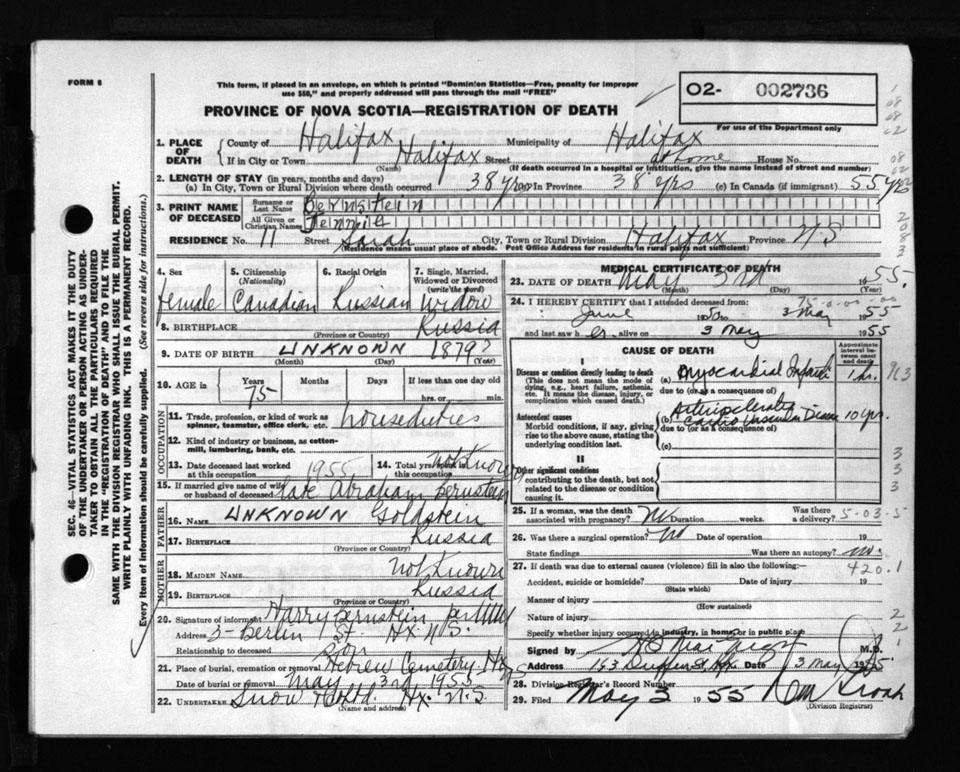 FORM 6
This form, if placed in an envelope, on which is printed "Dominion Statistics—Free, penalty for improper
use $50," and properly addressed will pass through the mail "FREE"
PROVINCE OF NOVA SCOTIA—REGISTRATION OF DEATH
O2- 002736
For use of the Department only
1. PLACE OF DEATH
County of Halifax Municipality of Halifax
If in City or Town Halifax Street at home House No.
(Name) (If death occurred in a hospital or institution, give the name instead of street and number)
2. LENGTH OF STAY (in years, months and days)
(a) In City, Town or Rural Division where death occurred 38 yrs (b) In Province 38 yrs (c) In Canada (if immigrant) 55 yrs
3. PRINT NAME OF DECEASED
Surname or Last Name Bernstein
All Given or Christian Names Jennie
RESIDENCE No. 11 Street Sarah City, Town or Rural Division Halifax Province N-S
(Residence means usual place of abode. Post Office Address for residents in rural parts not sufficient)
4. Sex female
5. Citizenship (Nationality) Canadian
6. Racial Origin Russian
7. Single, Married, Widowed or Divorced (write the word) Widow
8. BIRTHPLACE Russia
(Province or Country)
9. DATE OF BIRTH UNKNOWN 1879?
(Month) (Day) (Year)
10. AGE in Years 75 Months Days If less than one day old hrs. or min.
OCCUPATION
11. Trade, profession, or kind of work as spinner, teamster, office clerk, etc. housedities
12. Kind of industry or business, as cotton-mill, lumbering, bank, etc.
13. Date deceased last worked at this occupation 1955
14. Total yrs. spent in this occupation not Known
15. If married give name of wife or husband of deceased late Abraham Bernstein
FATHER
16. NAME UNKNOWN Goldstein
17. BIRTHPLACE Russia
(Province or Country)
MOTHER
18. MAIDEN NAME not Known
19. BIRTHPLACE Russia
(Province or Country)
20. Signature of informant Harry Bernstein per
Address 3- Berlin St. Hx N.S.
Relationship to deceased son
21. Place of burial, cremation or removal Hebrew Cemetery
Date of burial or removal May 3rd 1955
22. UNDERTAKER Snow & Co Ltd. Hx. N.S
(Name and address)
MEDICAL CERTIFICATE OF DEATH
23. DATE OF DEATH May 3rd 1955.
(Month) (Day) (Year)
24. I HEREBY CERTIFY that I attended deceased from:
75-0-00-00
June 1950 to 3 May 1955
and last saw h er alive on 3 May 1955
CAUSE OF DEATH
Approximate interval between onset and death
I
Disease or condition directly leading to death
(This does not mean the mode of dying, e.g., heart failure, asthenia, etc. It means the disease, injury, or complication which caused death.)
(a) Myocardial Infarct 1 hr.
due to (or as a consequence of)
Antecedent causes
Morbid conditions, if any, giving rise to the above cause, stating the underlying condition last.
(b) Arteriosclerotic Cardio Vascular Disease 10 yrs.
due to (or as a consequence of)
(c)
II
Other significant conditions
contributing to the death, but not related to the disease or condition causing it.
25. If a woman, was the death associated with pregnancy? No Duration weeks. Was there a delivery?
5-03-5
26. Was there a surgical operation? No Date of operation 19
State findings Was there an autopsy? no.
27. If death was due to external causes (violence) fill in also the following:
420.1
Accident, suicide or homicide? Date of injury 19
(State which)
Manner of injury
(How sustained)
Nature of injury
Specify whether injury occurred in industry, in home, or in public place
Signed by M.D.
Address 153 Hx. Date 3 May 1955
28. Division Registrar's Record Number
29. Filed May 3 1955
(Division Registrar)
SEC. 46—VITAL STATISTICS ACT MAKES IT THE DUTY
OF THE UNDERTAKER OR PERSON ACTING AS UNDER-
TAKER TO OBTAIN ALL THE PARTICULARS REQUIRED
IN THE "REGISTRATION OF DEATH" AND TO FILE THE
SAME WITH THE DIVISION REGISTRAR WHO SHALL ISSUE THE BURIAL PERMIT.
WRITE PLAINLY WITH UNFADING INK. THIS IS A PERMANENT RECORD.
Every item of information should be carefully supplied. (See reverse side for instructions.)